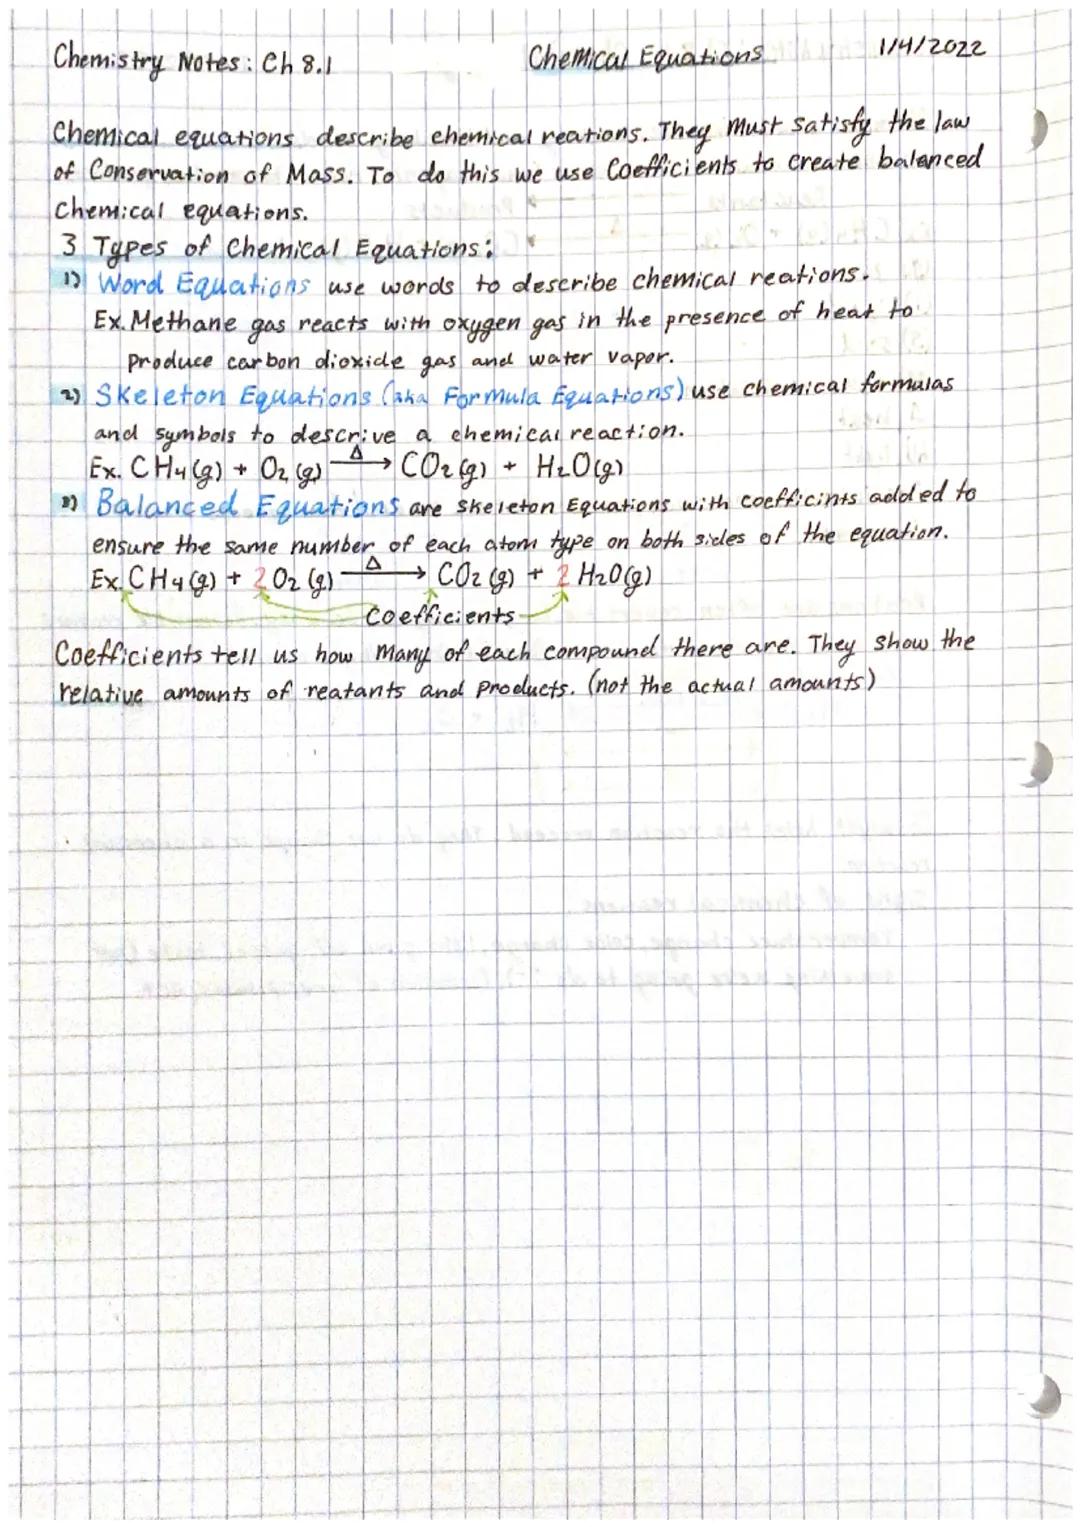 Chemistry Notes: Ch 8.1 Chemical Equations 1/4/2022
Chemical equations describe chemical reations. They Must satisfy the law
of Conservation of Mass. To do this we use Coefficients to create balanced
Chemical equations.
3 Types of Chemical Equations:
1) Word Equations use words to describe chemical reations.
Ex. Methane gas reacts with oxygen gas in the presence of heat to
produce carbon dioxide gas and water vapor.
2) Skeleton Equations (aka Formula Equations) use chemical formulas
and symbols to descrive a chemical reaction.
Ex. CH4(g) + O2(g) —Δ→ CO2(g) + H2O(g)
3) Balanced Equations are skeleton Equations with coefficints added to
ensure the same number of each atom type on both sides of the equation.
Ex. CH4(g) + 2 O2(g) —Δ→ CO2(g) + 2 H2O(g)
Coefficients
Coefficients tell us how many of each compound there are. They show the
relative amounts of reatants and Products. (not the actual amounts)